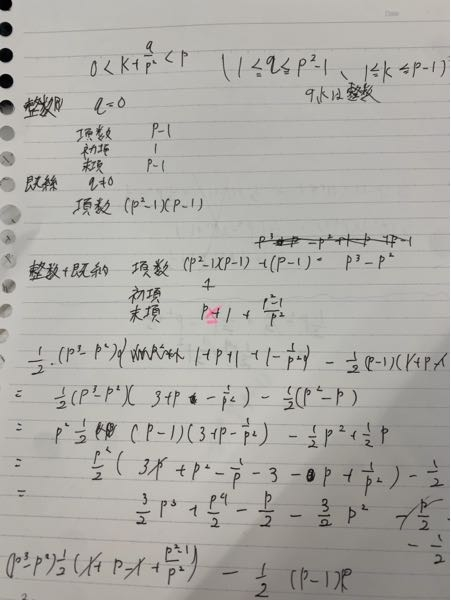 0 < k + q/p² < p (1 ≤ q ≤ p²-1、1 ≤ k ≤ p-1)
q,kは整数
整数 q=0
項数 p-1
初項 1
末項 p-1
既約 q≠0
項数 (p²-1)(p-1)
整数+既約 項数 (p²-1)(p-1)+(p-1)= p³-p²
初項 1
末項 p+1+(p²-1)/p²
1/2・(p³-p²) 1+p+1+1-1/p² - 1/2(p-1)(1+p-1
= 1/2(p³-p²)(3+p-1/p²) - 1/2(p²-p)
= p² 1/2 (p-1)(3+p-1/p²) - 1/2p²+1/2p
= p²/2(3p+p²-1/p-3-p+1/p²) - 1/2
= 3/2p³+p⁴/2-p/2-3/2p² -p/2
- 1/2
(p³-p²)1/2(1+p-1+(p²-1)/p²) - 1/2(p-1)p